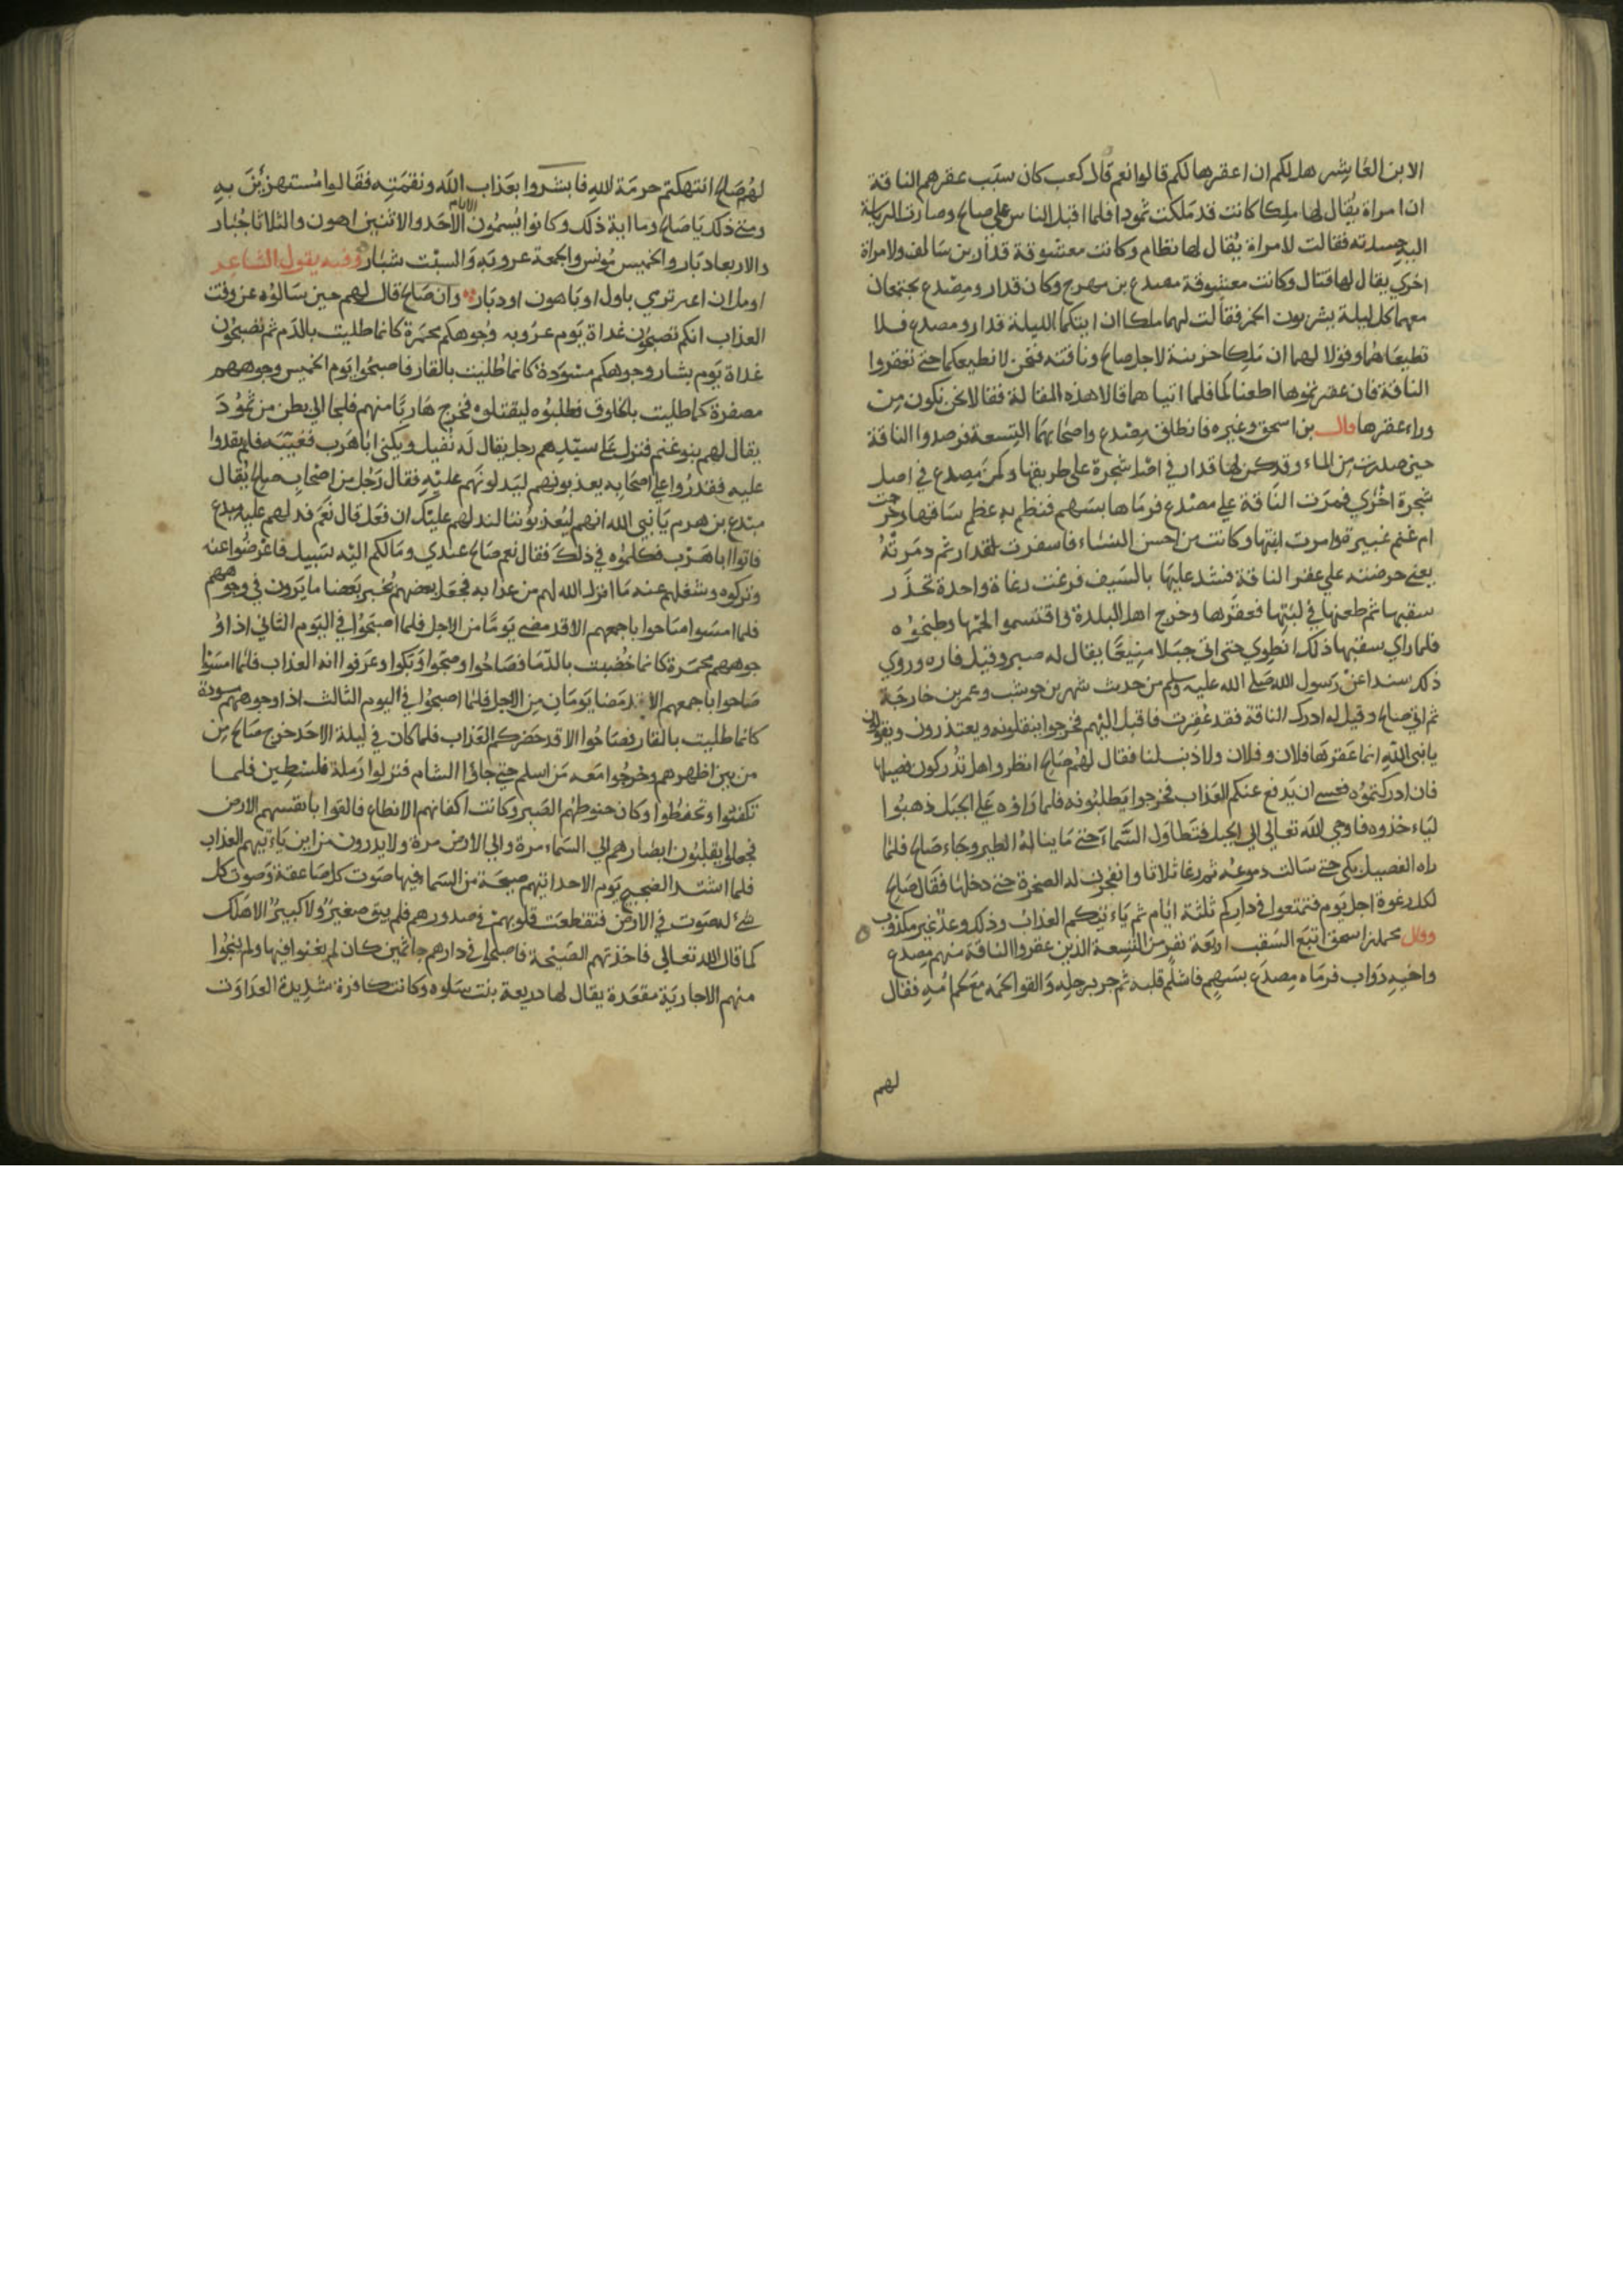 الا بن العاشر هل لكم ان اعقرها لكم قالوا نعم قال كعب كان سبب عقرهم الناقة
ان امراة يقال لها ملكا كانت قد ملكت ثمودا فلما اقبل الناس على صالح وصارت الرياسة
اليه حسدته فقالت لامراة يقال لها نظام وكانت معشوقة قدار بن سالف ولامراة
اخري يقال لها قتال وكانت معشوقة مصدع بن مهرج وكان قدار ومصدع يجتمعان
معهما كل ليلة يشربون الخمر فقالت لهما ملكا ان ايتكما الليلة قدار ومصدع فلا
تطيعاهما وقولا لهما ان ملكا حزينة لاجل صالح وناقته فنحن لا نطيعكما حتى تعقروا
الناقة فان عقرتموها اطعناكما فلما اتيا هما قالا هذه المقالة فقالا نحن نكون من
وراء عقرها قال بن اسحق وغيره فانطلق مصدع واصحابهما التسعة فرصدوا الناقة
حين صدرت من الماء وقد كمن لها قدار في اصل شجرة على طريقها وكمن مصدع في اصل
شجرة اخري فمرت الناقة علي مصدع فرماها بسهم فنظم به عظم ساقها وخرجت
ام غنم عنيزة وامرت ابنتها وكانت من احسن النساء فاسفرت لقدار ثم دمرته
يعني حرضته علي عقر الناقة فشد عليها بالسيف فرغت رغاة واحدة تحذر
سقبها ثم طعنها في لبتها فعقرها وخرج اهل البلدة فاقتسموا لحمها وطبخوه
فلما راي سقبها ذلك انطوي حتى اتى جبلا منيعا يقال له صبر وقيل قاره وروي
ذلك سندا عن رسول الله صلى الله عليه وسلم من حديث شهر بن حوشب وعمر بن خارجة
ثم اتي صالح وقيل له ادرك الناقة فقد عقرت فاقبل اليهم فخرجوا يتقلونه ويعتذرون ويقولون
يا نبي الله انما عقرها فلان وفلان ولا ذنب لنا فقال لهم صالح انظروا هل تدركون فصيلها
فان ادركتموه فعسى ان يدفع عنكم العذاب فخرجوا يطلبونه فلما راوه علي الجبل ذهبوا
لياءخذوه فاوحي الله تعالى الى الجبل فتطاول السماء حتى ما يناله الطير وجاء صالح فلما
راه الفصيل بكي حتى سالت دموعه ثم رغا ثلاثا وانفجرت له الصخرة حتى دخلها فقال صالح
لكل رغوة اجل يوم فتمتعوا في داركم ثلثة ايام ثم ياءتيكم العذاب وذلك وعد غير مكذوب
وقال محمد بن اسحق اتبع السقب اربعة نفر من التسعة الذين عقروا الناقة منهم مصدع
واخيه دواب فرماه مصدع بسهم فاشلم قلبه ثم جر برجله والقوا لحمه مع لحم امه فقال
لهم
لهم صالح انتهكتم حرمة لله فابشروا بعذاب الله ونقمته فقالوا مستهزئين به
ومتى ذلك يا صالح وما اية ذلك وكانوا يسمون الايام الاحد والاثنين اهون والثلاثا جبار
والاربعا دبار والخميس مونس والجمعة عروبه والسبت شبار وفيه يقول الشاعر
اومل ان اعير تري باول او باهون او دبار وان صالح قال لهم حين سالوه عن وقت
العذاب انكم تصبحون غداة يوم عروبه وجوهكم محمرة كانما طليت بالدم ثم تصبحون
غداة يوم بشار وجوهكم مسودة كانما طليت بالقار فاصبحوا يوم الخميس وجوههم
مصفرة كما طليت بالخلوق فطلبوه ليقتلوه فخرج هاربا منهم فلجا الي بطن من ثمود
يقال لهم بنو غنم فنزل على سيدهم رجل يقال له نفيل ويكنى ابا هرب فغيبه فلم يقدروا
عليه فغدروا علي اصحابه يعذبونهم ليدلونهم عليه فقال رجل من اصحاب صالح يقال
مبدع بن هرم يا نبي الله انهم ليعذبوننا لندلهم عليك ان فعل قال نعم فدلهم عليه مبدع
فاتوا ابا هرب فكلموه في ذلك فقال نعم صالح عندي وما لكم اليه سبيل فاعرضوا عنه
وتركوه وشغلهم عنه ما انزل الله لهم من عذابه فجعل بعضهم يخبر بعضا ما يرون في وجوههم
فلما امسوا صاحوا باجمعهم الا قد مضى يوما من الاجل فلما اصبحوا في اليوم الثاني اذا و
جوههم محمرة كانما خضبت بالدما فصاحوا وضجوا وبكوا وعرفوا انه العذاب فلما امسوا
صاحوا باجمعهم الا قد مضا يومان من الاجل فلما اصبحوا في اليوم الثالث اذا وجوههم مسودة
كانما طليت بالقار فصاحوا الا قد حضركم العذاب فلما كان في ليلة الاحد خرج صالح من
من بين اظهرهم وخرجوا معه من اسلم حتى جاؤا الشام فنزلوا رملة فلسطين فلما
تكفنوا وتحفطوا وكان حنوطهم الصبر وكانت اكفانهم الانطاع فالقوا بانفسهم الارض
فجعلوا يقلبون ابصارهم الي السماء مرة والي الارض مرة ولا يدرون من اين ياءتيهم العذاب
فلما اشتد الضجيج يوم الاحد اتيهم صيحة من السما فيها صوت كل صاعقة وصوت كل
شئ له صوت في الارض فتقطعت قلوبهم في صدورهم فلم يبق صغير ولا كبير الا هلك
كما قال الله تعالي فاخذتهم الصيحة فاصبحوا في دارهم جاثمين كان لم يغنوا فيها ولم ينجوا
منهم الا جارية مقعدة يقال لها دريعة بنت سلوه وكانت كافرة شديدة العداوت